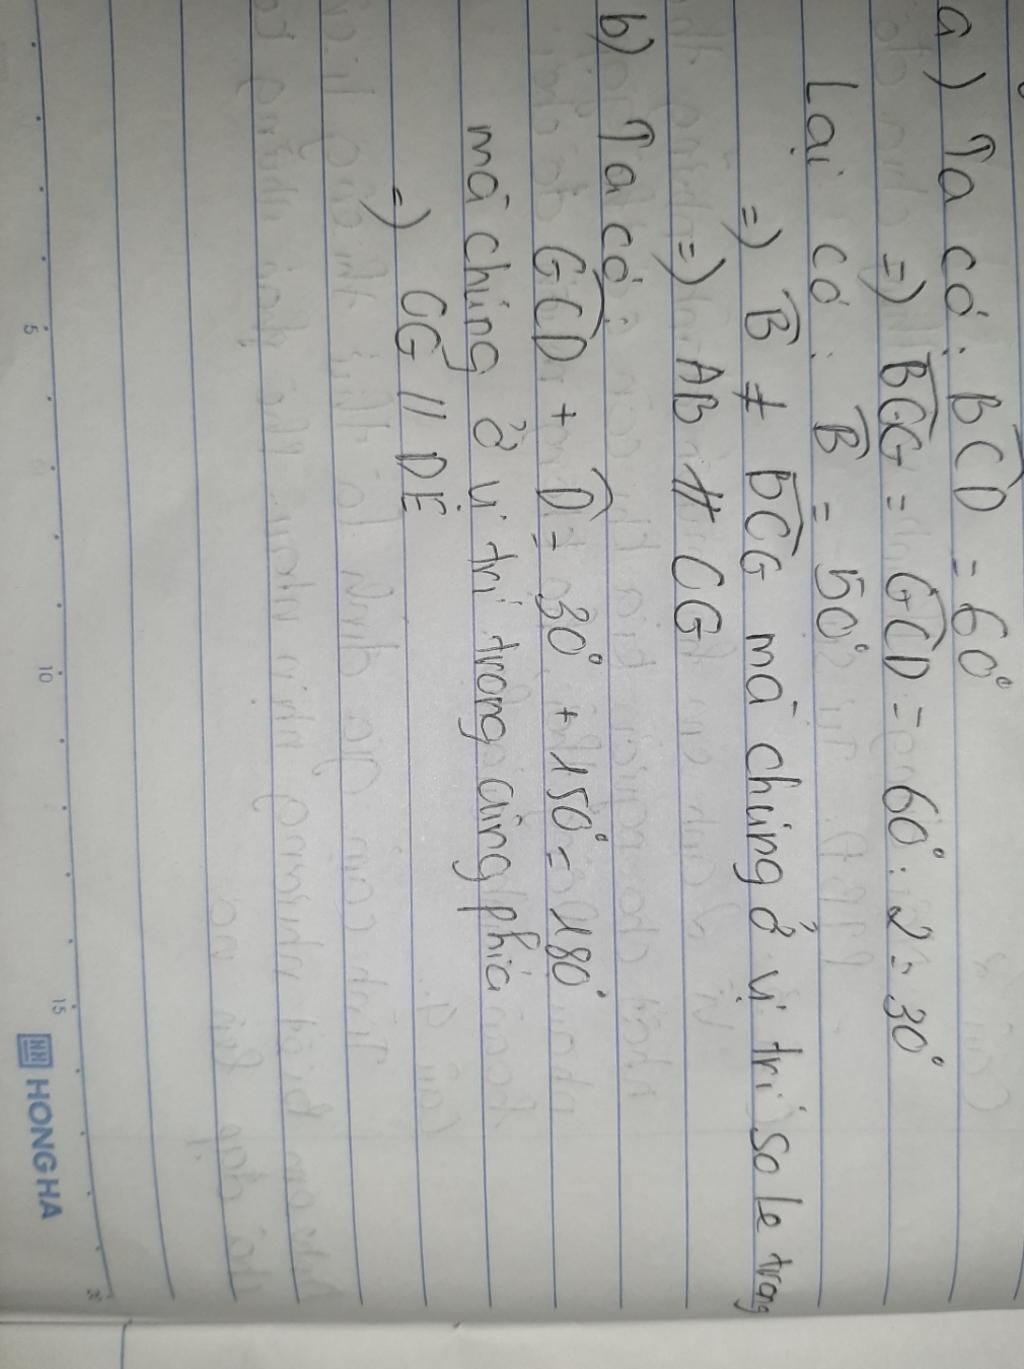 a) Ta có: BCD = 60°
=) BCG = GCD = 60° : 2 = 30°
Lại có: B = 50°
=) B ≠ BCG mà chúng ở vị trí so le trong
=) AB ∦ CG
b) Ta có:
GCD + D = 30° + 150° = 180°
mà chúng ở vị trí trong cùng phía
=) CG // DE
5 10 15
HONG HA